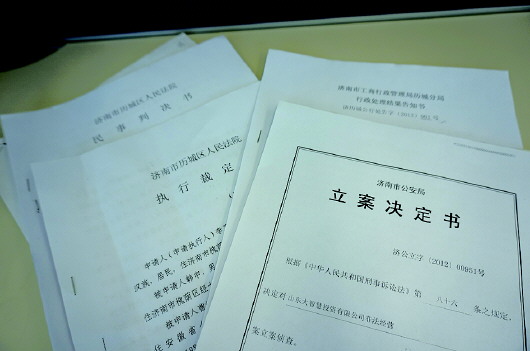 济南市历城区人民法院
民事判决书
济南市历城区人民法院
执行裁定
申请人(申请执行人)李
汉族,居民,住济南市槐荫区
被申请人
住济南市槐荫区经
被申请人曹
住安徽省
济南市工商行政管理局历城分局
行政处理结果告知书
济南市公安局
立案决定书
济公立字〔2012〕00951号
根据《中华人民共和国刑事诉讼法》第 八十六 条之规定,
决定对山东大智慧投资有限公司非法经营
案立案侦查。